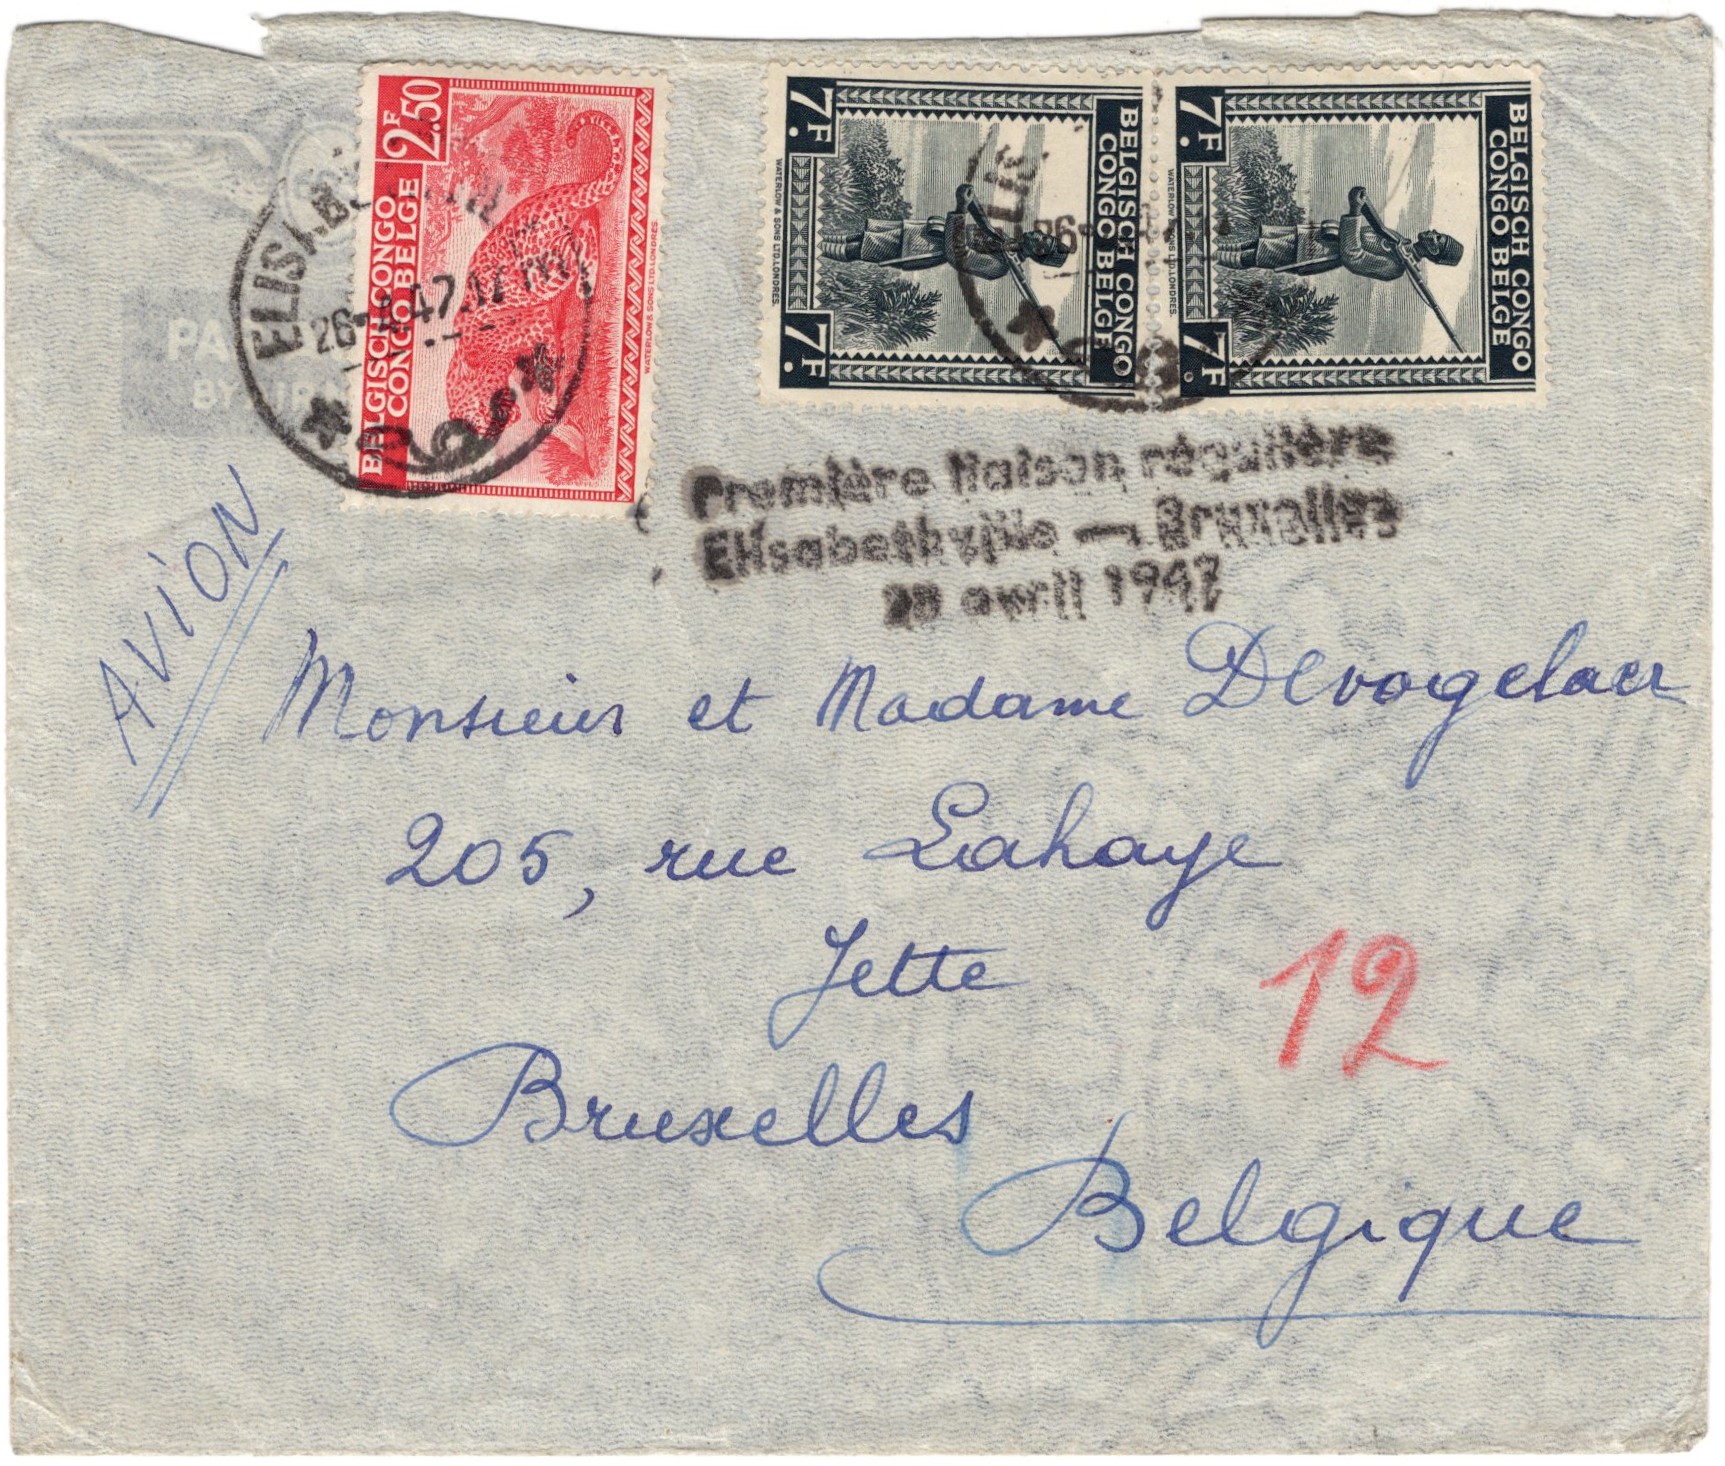 2F50
BELGISCH CONGO
CONGO BELGE
WATERLOW & SONS LTD. LONDRES.
7.F
BELGISCH CONGO
CONGO BELGE
7.F
WATERLOW & SONS LTD. LONDRES.
7.F
BELGISCH CONGO
CONGO BELGE
7.F
WATERLOW & SONS LTD. LONDRES.
26-4-47
Première liaison régulière
Elisabethville — Bruxelles
28 avril 1947
AVION
Monsieur et Madame Devogelaer
205, rue Lahaye
Jette
12
Bruxelles
Belgique